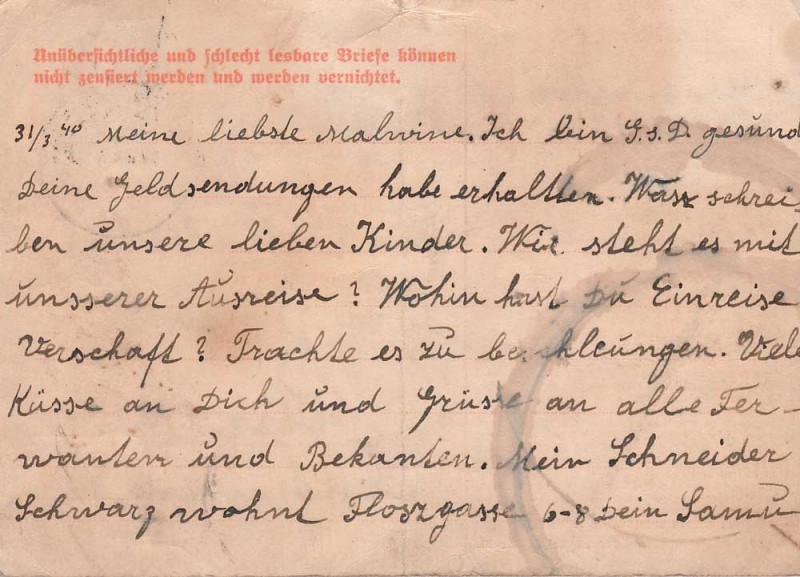 Unübersichtliche und schlecht lesbare Briefe können
nicht zensiert werden und werden vernichtet.
31/3 40 Meine liebste Malwine. Ich bin G.s.D. gesund
Deine Geldsendungen habe erhallten. Wasz schrei-
ben unsere lieben Kinder. Wie steht es mit
unsserer Ausreise? Wohin hast Du Einreise
Verschaft? Trachte es zu beschleungen. Viele
Küsse an Dich und Grüsse an alle Fer-
wanten und Bekanten. Mein Schneider
Schwarz wohnt Floszgasse 6-8 Dein Samu